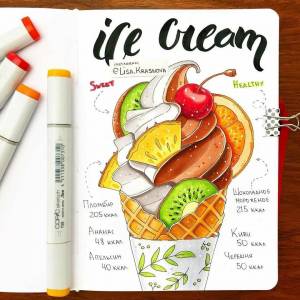 ice cream
instagram:
@Lisa.Krasnova
Sweet
Healthy
Пломбир
205 ккал
Ананас
48 ккал
Апельсин
40 ккал
Шоколадное
мороженое
215 ккал
Киви
50 ккал
Черешня
50 ккал
COPIC